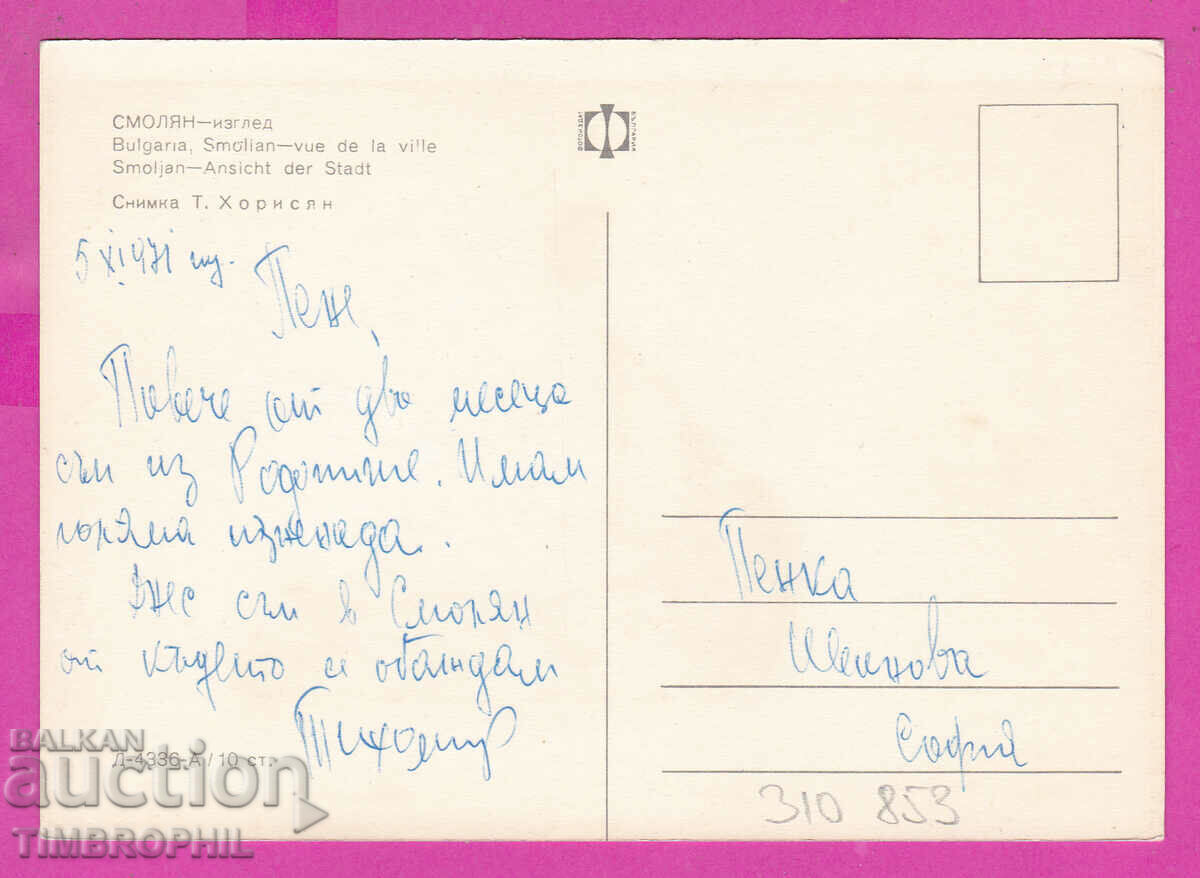 СМОЛЯН—изглед
Bulgaria, Smolian—vue de la ville
Smoljan—Ansicht der Stadt
Снимка Т. Хорисян
ФОТОИЗДАТ
БЪЛГАРИЯ
5 XI 971
Пене,
Повече от два месеца
съм из Родопите. Имам
голяма изненада.
Днес съм в Смолян
от където се обаждам
Тихомир
Л-4336-А/10 ст.
Пенка
София
310 853
BALKAN
auction
TIMBROPHIL